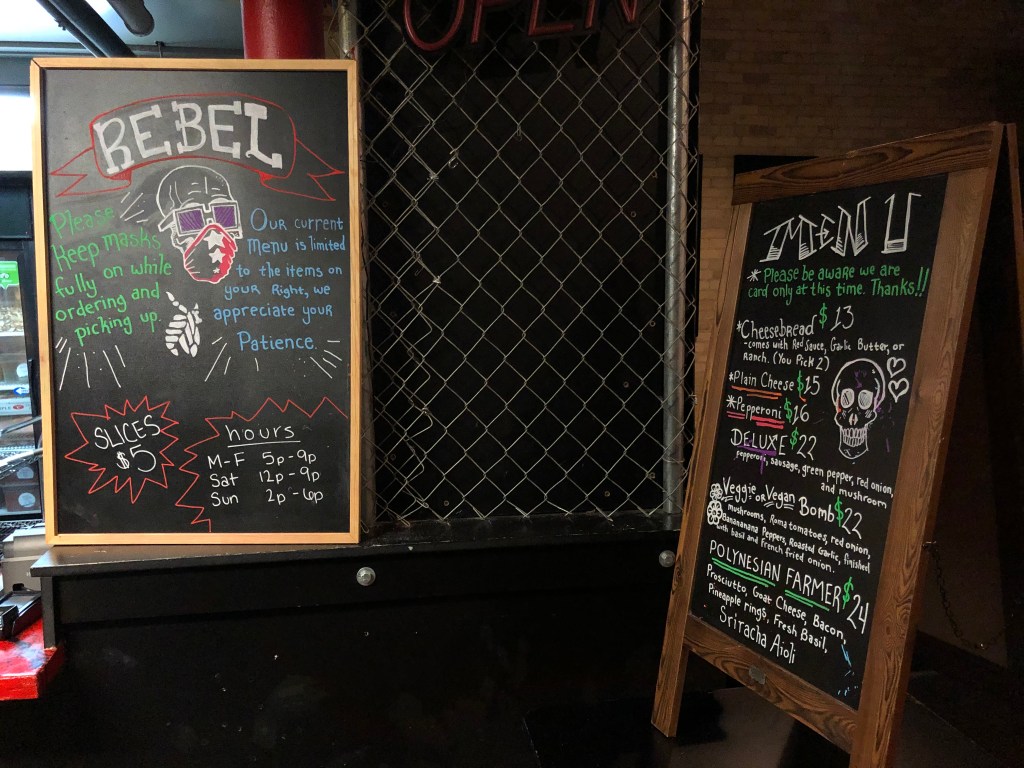 OPEN
REBEL
Please
Keep masks
fully on while
ordering and
picking up.
Our current
menu is limited
to the items on
your Right, we
appreciate your
Patience.
SLICES
$5
hours
M-F 5p-9p
Sat 12p-9p
Sun 2p-6p
MENU
* Please be aware we are
card only at this time. Thanks!!
*Cheesebread $13
-comes with Red Sauce, Garlic Butter, or
Ranch. (You Pick 2)
*Plain Cheese $15
*Pepperoni $16
DELUXE $22
pepperoni, sausage, green pepper, red onion,
and mushroom
Veggie or Vegan Bomb $22
mushrooms, Roma tomatoes, red onion,
Banananana Peppers, Roasted Garlic, finished
with basil and french fried onion.
POLYNESIAN FARMER $24
Prosciutto, Goat Cheese, Bacon,
Pineapple rings, Fresh Basil,
Sriracha Aioli